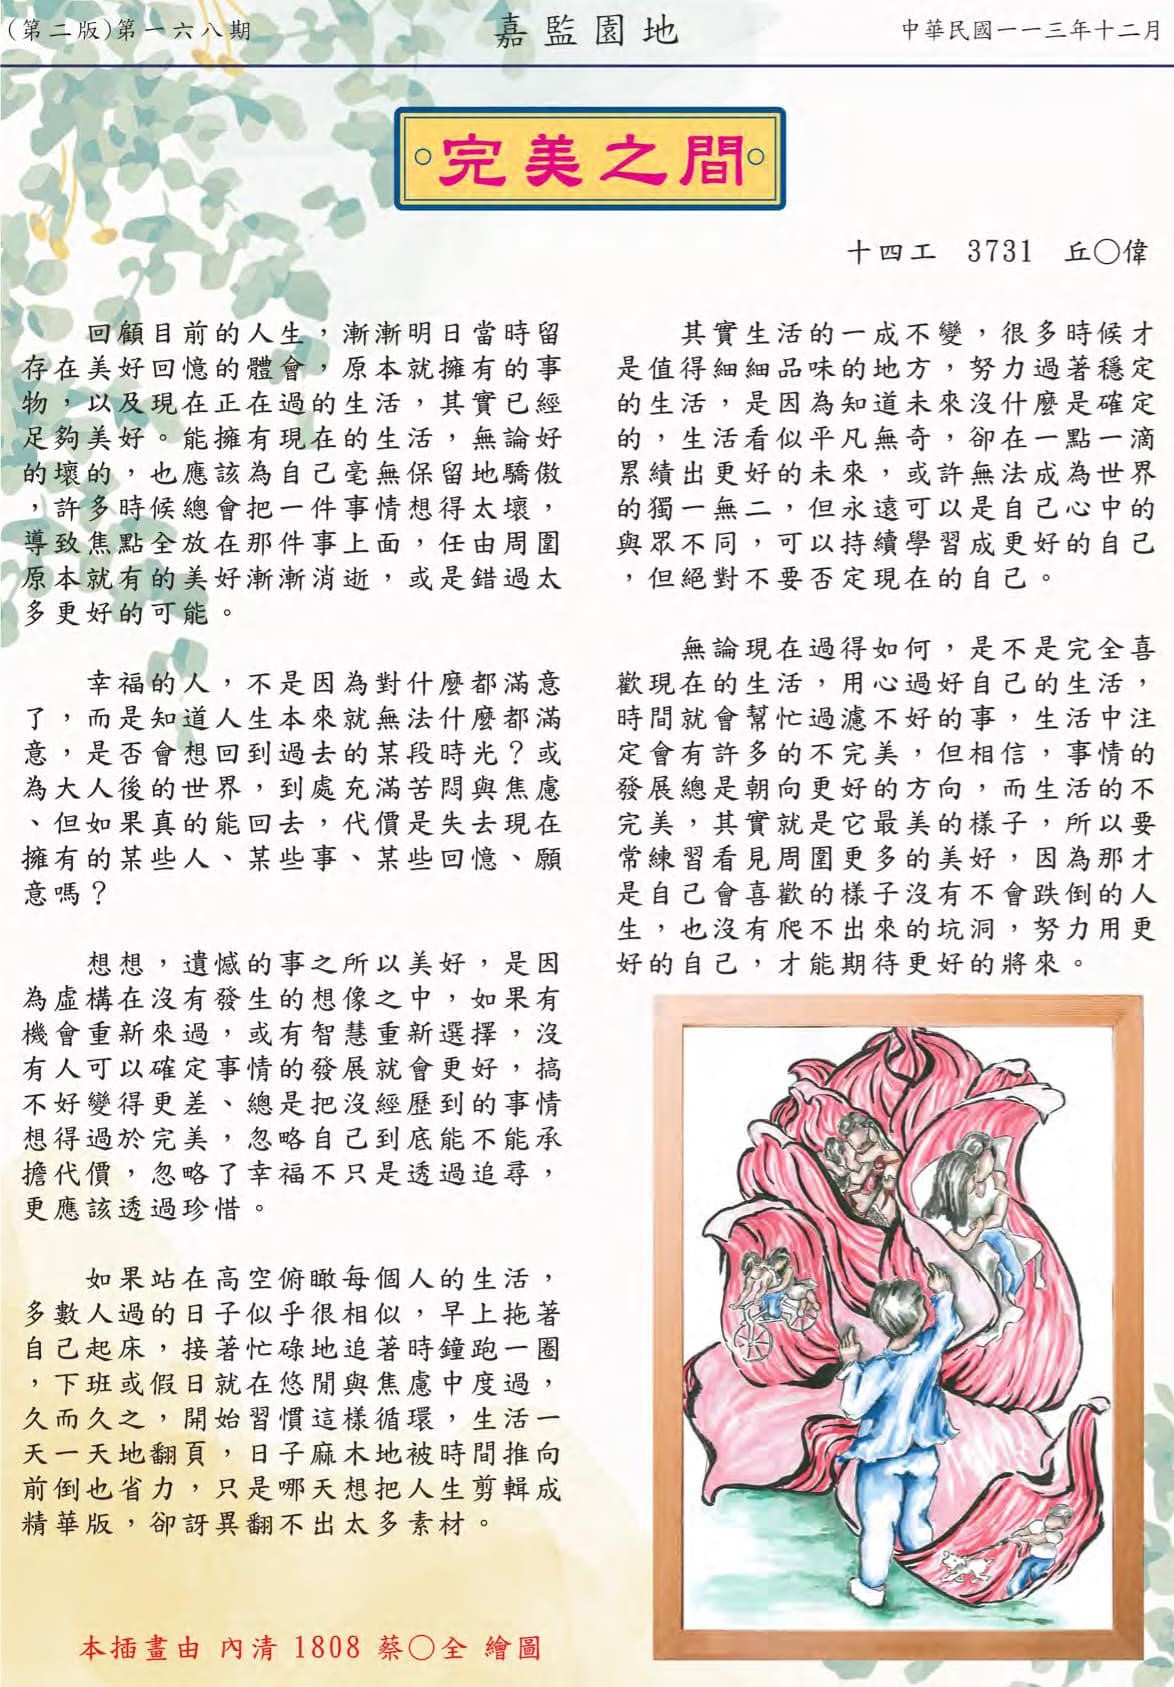 (第二版)第一六八期
嘉監園地
中華民國一一三年十二月
完美之間
十四工 3731 丘○偉
回顧目前的人生，漸漸明日當時留
存在美好回憶的體會，原本就擁有的事
物，以及現在正在過的生活，其實已經
足夠美好。能擁有現在的生活，無論好
的壞的，也應該為自己毫無保留地驕傲
，許多時候總會把一件事情想得太壞，
導致焦點全放在那件事上面，任由周圍
原本就有的美好漸漸消逝，或是錯過太
多更好的可能。
幸福的人，不是因為對什麼都滿意
了，而是知道人生本來就無法什麼都滿
意，是否會想回到過去的某段時光？或
為大人後的世界，到處充滿苦悶與焦慮
、但如果真的能回去，代價是失去現在
擁有的某些人、某些事、某些回憶、願
意嗎？
想想，遺憾的事之所以美好，是因
為虛構在沒有發生的想像之中，如果有
機會重新來過，或有智慧重新選擇，沒
有人可以確定事情的發展就會更好，搞
不好變得更差、總是把沒經歷到的事情
想得過於完美，忽略自己到底能不能承
擔代價，忽略了幸福不只是透過追尋，
更應該透過珍惜。
如果站在高空俯瞰每個人的生活，
多數人過的日子似乎很相似，早上拖著
自己起床，接著忙碌地追著時鐘跑一圈
，下班或假日就在悠閒與焦慮中度過，
久而久之，開始習慣這樣循環，生活一
天一天地翻頁，日子麻木地被時間推向
前倒也省力，只是哪天想把人生剪輯成
精華版，卻訝異翻不出太多素材。
其實生活的一成不變，很多時候才
是值得細細品味的地方，努力過著穩定
的生活，是因為知道未來沒什麼是確定
的，生活看似平凡無奇，卻在一點一滴
累績出更好的未來，或許無法成為世界
的獨一無二，但永遠可以是自己心中的
與眾不同，可以持續學習成更好的自己
，但絕對不要否定現在的自己。
無論現在過得如何，是不是完全喜
歡現在的生活，用心過好自己的生活，
時間就會幫忙過濾不好的事，生活中注
定會有許多的不完美，但相信，事情的
發展總是朝向更好的方向，而生活的不
完美，其實就是它最美的樣子，所以要
常練習看見周圍更多的美好，因為那才
是自己會喜歡的樣子沒有不會跌倒的人
生，也沒有爬不出來的坑洞，努力用更
好的自己，才能期待更好的將來。
本插畫由 內清 1808 蔡○全 繪圖